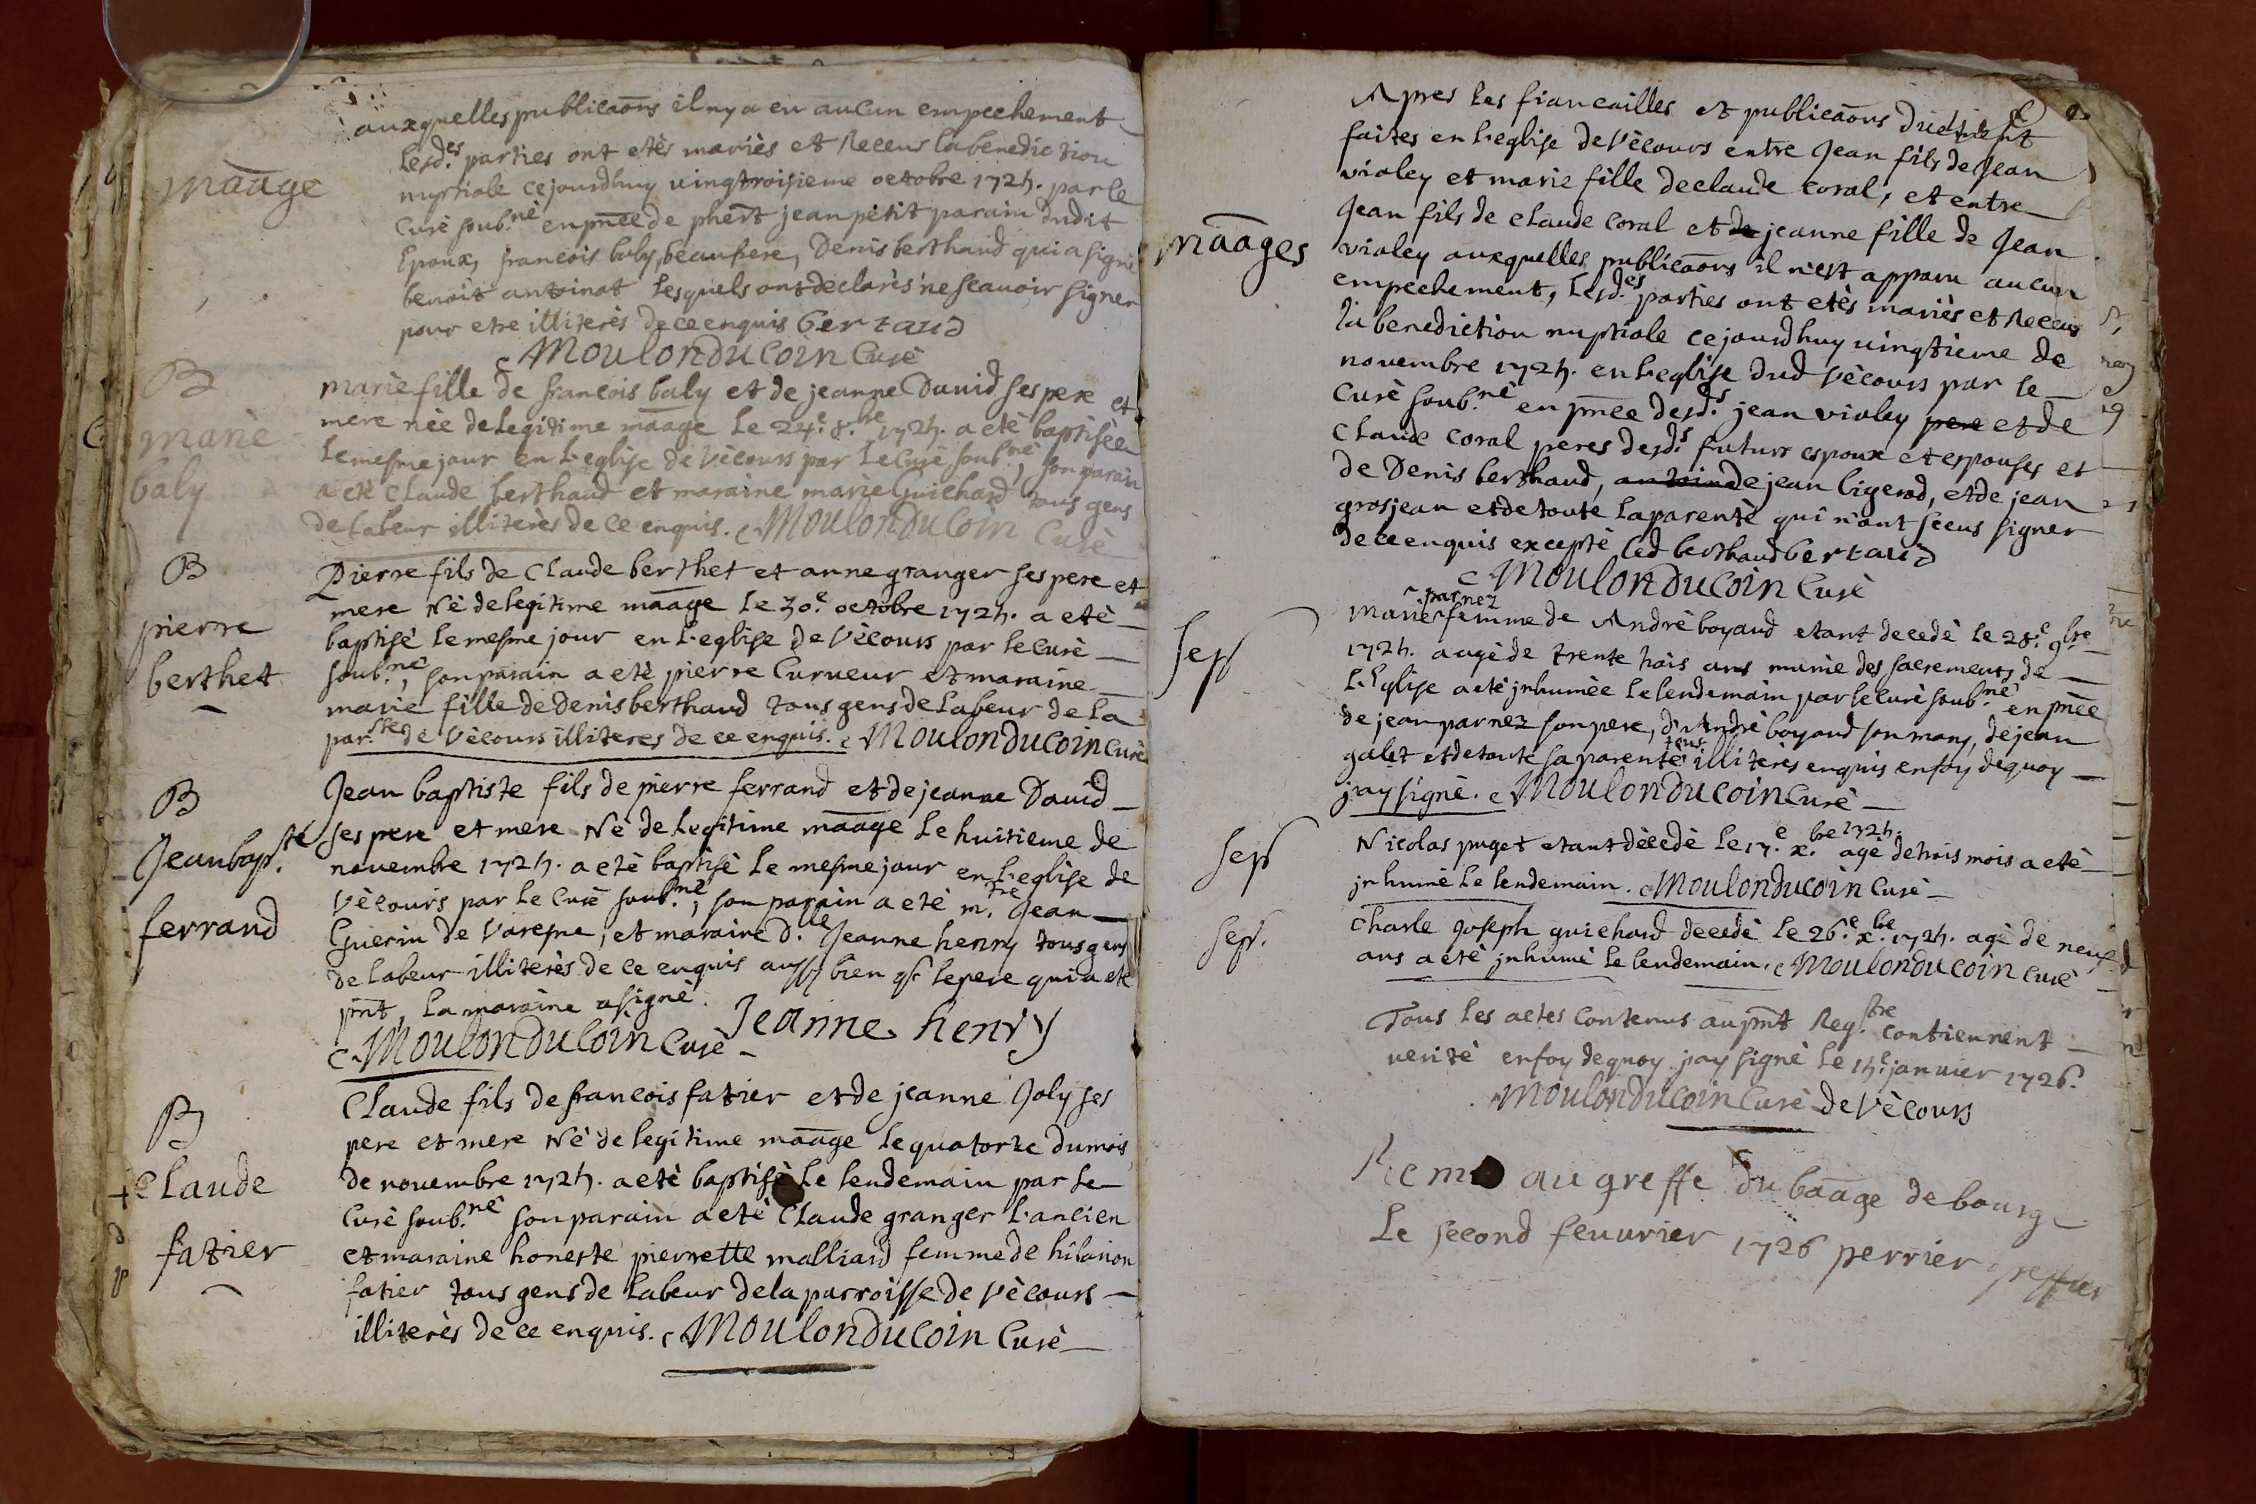 auxquelles publicaōns il ny a eu aucun empechement
lesd.es parties ont etès mariès et Receus la benediction
mariāge
nuptiale ce jourdhuy vingtroisieme octobre 1725. par le
Curè soub.nè en pn̄ce de jean petit parain dudit
Epoux, francois baly beaufrere, Denis berthaud qui a signè
benoit antoinat lesquels ont declarès ne scavoir signer
pour etre illiterès de ce enquis bertaud
Moulonducoin Curè
B
marie baly
Marie fille de francois baly et de jeanne David ses pere et
mere nèe de legitime māage le 24.e 8.bre 1725. a etè baptisèe
le mesme jour en l'eglise de Vècours par le Curè soub.nè, son parain
a etè Claude berthaud et maraine marie Guichard tous gens
de labeur illiterès de ce enquis. Moulonducoin Curè
B
pierre berthet
Pierre fils de Claude berthet et anne granger ses pere et
mere Nè de legitime māage le 30.e octobre 1725. a etè
baptisè le mesme jour en l'eglise de Vècours par le Curè
soub.nè, son parain a etè pierre Curveur et maraine
marie fille de Denis berthaud tous gens de labeur de la
par.sse de Vècours illiteres de ce enquis. Moulonducoin Curè
B
Jean bap.te ferrand
Jean baptiste fils de pierre ferrand et de jeanne David
ses pere et mere Nè de legitime māage le huitieme de
novembre 1725. a etè baptisè le mesme jour en l'eglise de
Vècours par le Curè soub.nè, son parain a etè m.tre Jean
Guerin de Varesne, et maraine d.lle Jeanne henry tous gens
de labeur illiterès de ce enquis aussy bien q̄ le pere qui a etè
pn̄t, la maraine a signè. Jeanne henry
Moulonducoin Curè
B
Claude fatier
Claude fils de francois fatier et de jeanne Joly ses
pere et mere Nè de legitime māage le quatorze du mois
de novembre 1725. a etè baptisè le lendemain par le
Curè soub.nè son parain a etè Claude granger l'ancien
et maraine honeste pierrette malliard femme de hilarion
fatier tous gens de labeur de la parroisse de Vècours
illiterès de ce enquis. Moulonducoin Curè
Apres les fiancailles et publicaōns
faites en l'eglise de Vècours entre Jean fils de Jean
violey et marie fille de claude coral, et entre
Jean fils de claude coral et de jeanne fille de Jean
māages
violey auxquelles publicaōns il n'est apparu aucun
empechement, lesd.es parties ont etès mariès et Receus
la benediction nuptiale ce jourdhuy vingtieme de
novembre 1725. en l'eglise dud Vècours par le
Curè soub.nè en pn̄ce desd.s jean violey pere et de
Claude coral peres desd.s futurs espoux et espouses et
de Denis berthaud, antoine de jean ligerod, et de jean
grosjean et de toute la parentè qui n'ont sceus signer
de ce enquis exceptè led berthaud bertaud
Moulonducoin Curè
Sep
parnez
Marie femme de Andrè boyaud etant decedè le 28.e 9.bre
1725. aagè de trente trois ans munie des sacrements de
l'Eglise a etè jnhumèe le lendemain par le Curè soub.nè en pn̄ce
de jean parnez son pere, d'Andrè boyaud son mary, de jean
galet et de toute sa parentè tous illiterès enquis en foy de quoy
jay signè. Moulonducoin Curè
Sep
Nicolas puget etant dècedè le 17.e x.bre 1725. agè de trois mois a etè
jnhumè le lendemain. Moulonducoin Curè
Sep.
Charle Joseph guichard decedè le 26.e x.bre 1725. agè de neuf
ans a etè jnhumè le lendemain. Moulonducoin Curè
Tous les actes contenus au pn̄t Reg.stre contiennent
veritè en foy de quoy jay signè le 15.e janvier 1726.
Moulonducoin Curè de Vècours
Remis au greffe du bāage de bourg
Le second feuvrier 1726 perrier greffier